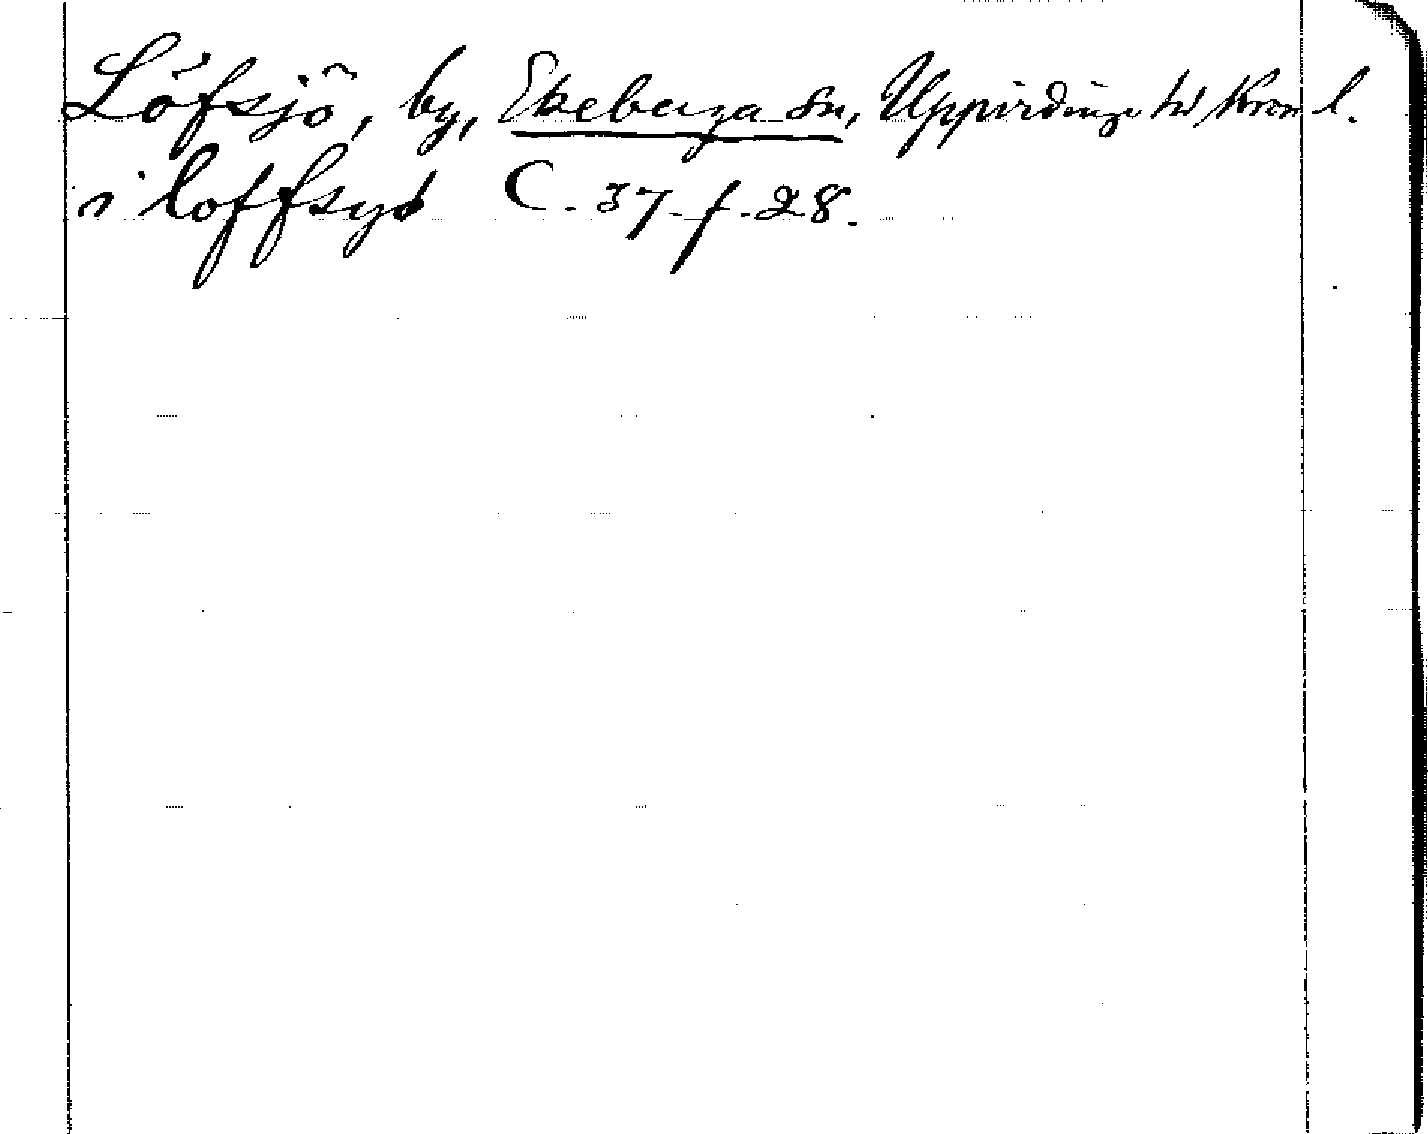 Löfsjö, by, Ekeberga sn, Uppvidinge hd Kron l.
i loffsyö C. 37. f. 28.